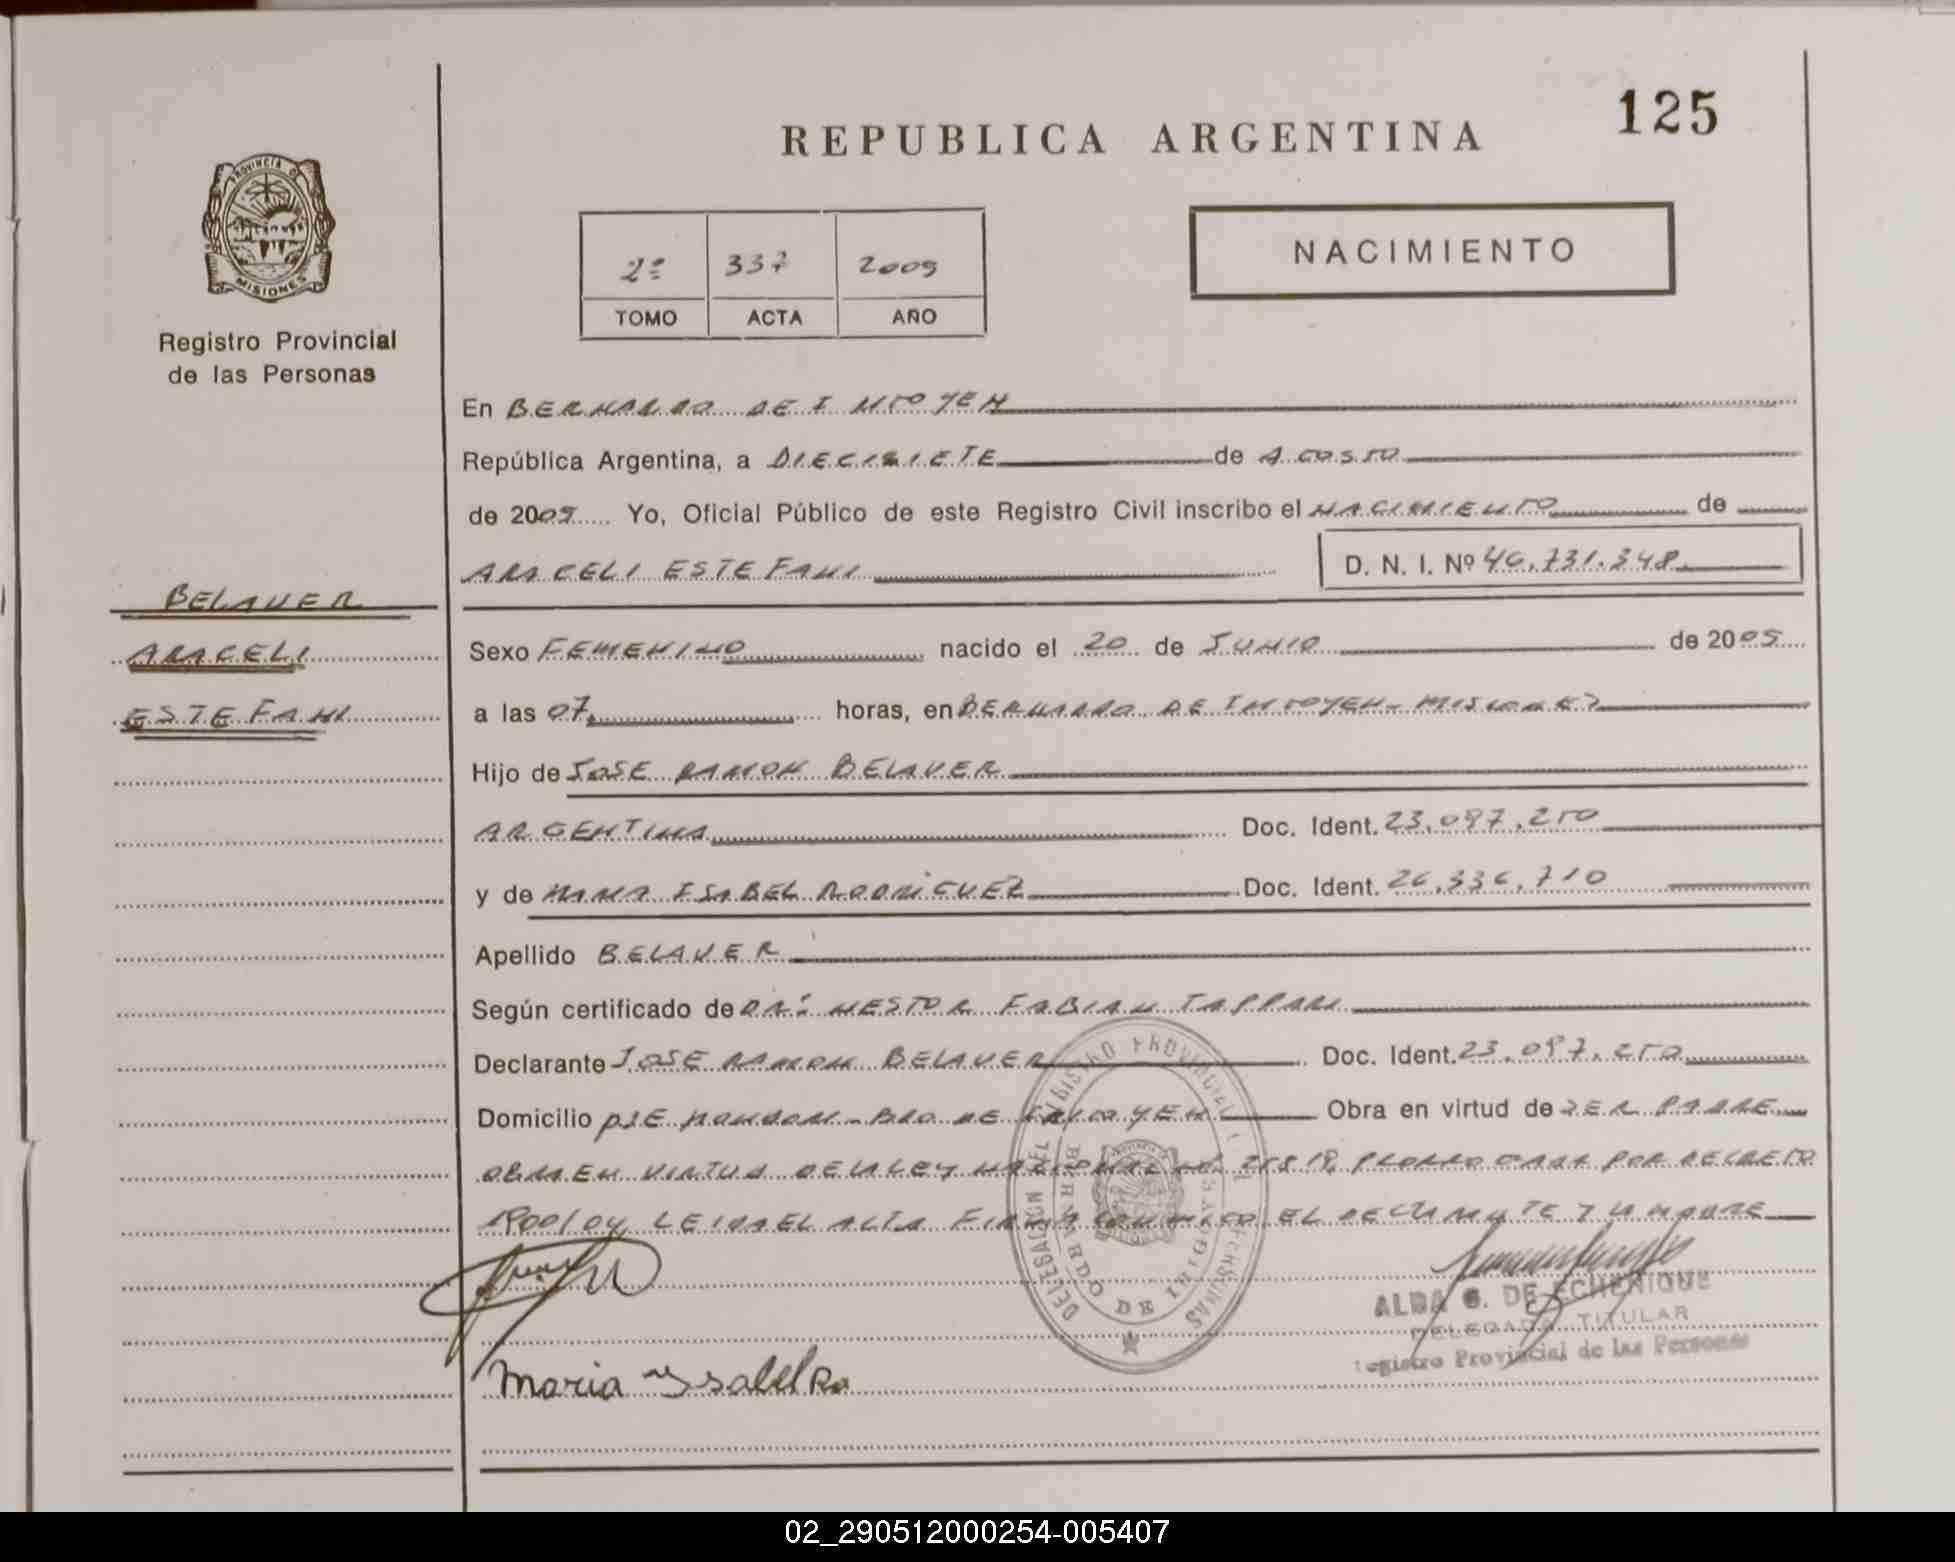 125
REPUBLICA ARGENTINA
PROVINCIA DE
MISIONES
Registro Provincial
de las Personas
2º 337 2009
TOMO ACTA AÑO
NACIMIENTO
En BERNARDO DE IRIGOYEN
República Argentina, a DIECISIETE de AGOSTO
de 2009 Yo, Oficial Público de este Registro Civil inscribo el NACIMIENTO de
ARACELI ESTEFANI D. N. I. Nº 46.731.348
BELAVER
ARACELI
ESTEFANI
Sexo FEMENINO nacido el 20 de JUNIO de 2005
a las 07 horas, en BERNARDO DE IRIGOYEN - MISIONES
Hijo de JOSE RAMON BELAVER
ARGENTINA Doc. Ident. 23.097.250
y de MARIA ISABEL RODRIGUEZ Doc. Ident. 26.336.710
Apellido BELAVER
Según certificado de DR: NESTOR FABIAN
Declarante JOSE RAMON BELAVER Doc. Ident. 23.097.250
Domicilio PJE - BDO DE IRIGOYEN Obra en virtud de SER PADRE
OBRA EN VIRTUD DE LA LEY NACIONAL Nº PRORROGADA POR DECRETO
1900/04 LEIDA EL ACTA FIRMA CONMIGO EL DECLARANTE Y LA MADRE
DELEGACION DEL REGISTRO PROVINCIAL DE LAS PERSONAS
BERNARDO DE IRIGOYEN
ALBA G. DE ECHENIQUE
DELEGADA TITULAR
Registro Provincial de las Personas
Maria Ysabel Ro
02_290512000254-005407